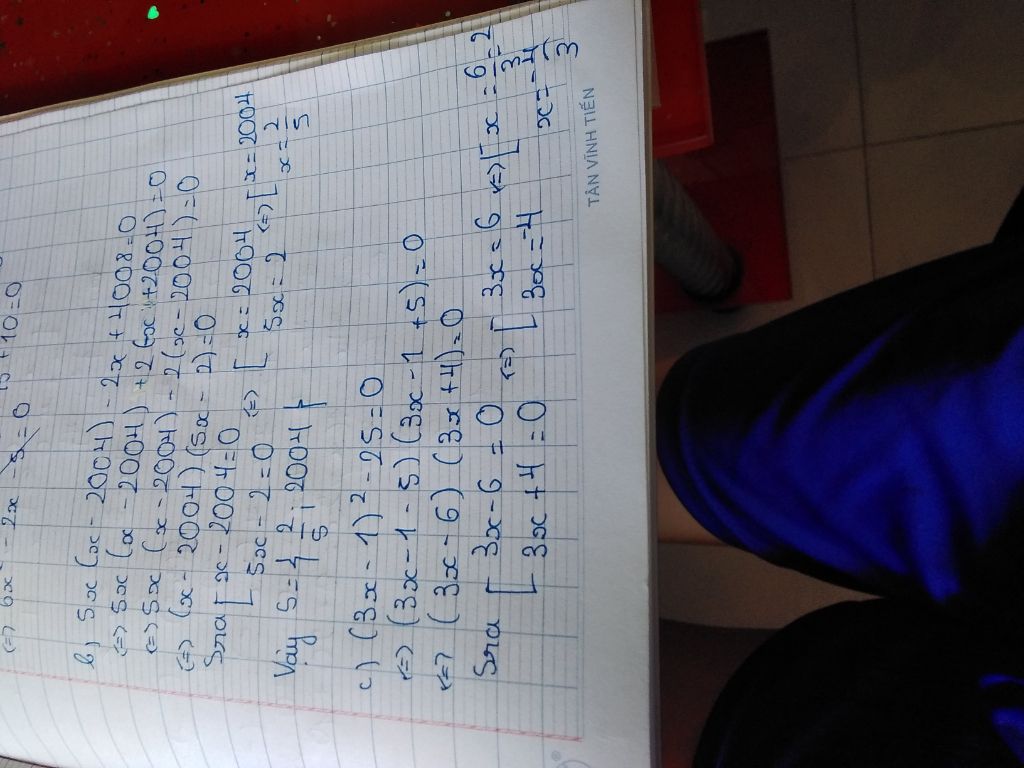 <=> 6x - 2x - 5 = 0 15 + 10 = 0
b, 5x (x - 2004) - 2x + 4008 = 0
<=> 5x (x - 2004) + 2 (-x + 2004) = 0
<=> 5x (x - 2004) - 2 (x - 2004) = 0
<=> (x - 2004) (5x - 2) = 0
Sra [ x - 2004 = 0 <=> [ x = 2004 <=> [ x = 2004
5x - 2 = 0 5x = 2 x = 2/5
Vậy S = { 2/5 ; 2004 }
c) (3x - 1)² - 25 = 0
<=> (3x - 1 - 5) (3x - 1 + 5) = 0
<=> (3x - 6) (3x + 4) = 0
Sra [ 3x - 6 = 0 <=> [ 3x = 6 <=> [ x = 6/3 = 2
3x + 4 = 0 3x = -4 x = -4/3
TÂN VĨNH TIẾN